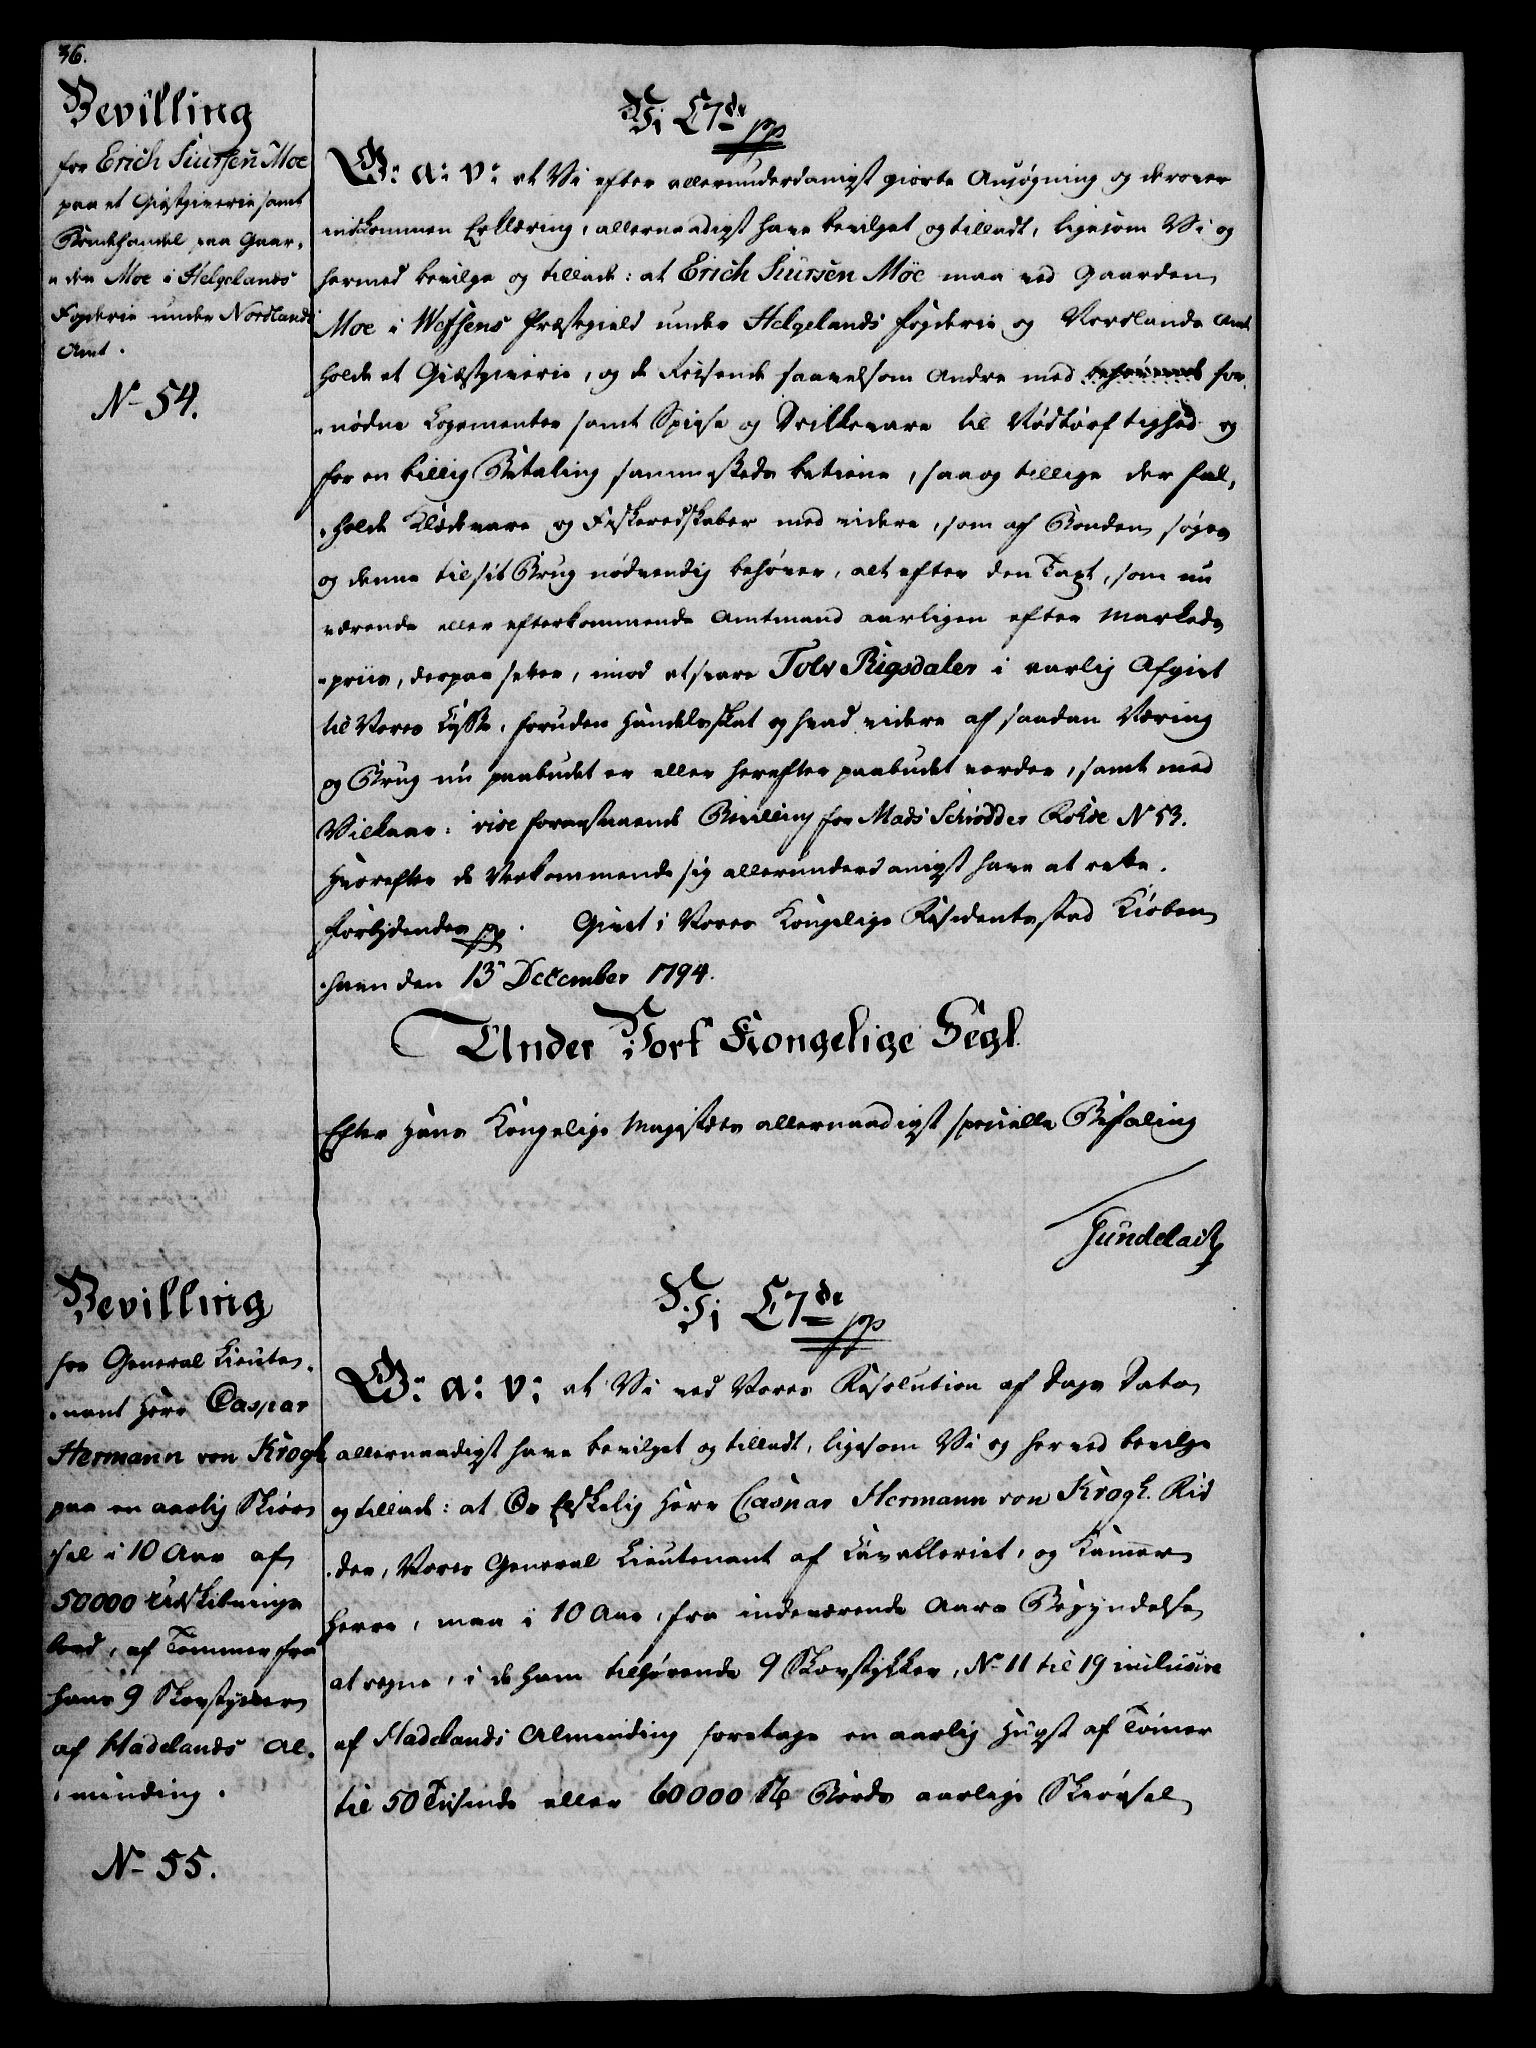 36.
Bevilling
for Erich Siursen Moe
paa et Giæstgiverie samt
Kramhandel paa Gaar-
-den Moe i Helgelands
Fogderie under Nordlands
Amt.
No 54.
Vi C 7de pp
G: a: v: at Vi efter allerunderdanigst giorte Ansøgning og derover
indkommen Erklæring, allernaadigst have bevilget og tilladt, ligesom Vi og
hermed bevilge og tillade: at Erich Siursen Moe maa ved Gaarden
Moe i Wefsens Præstegield under Helgelands Fogderie og Nordlands Amt
holde et Giæstgiverie, og de Reisende saavelsom Andre med for-
-nødne Logementer samt Spiise og Drikkevare til Nødtørftighed og
for en billig Betaling sammesteds betiene, saa og tillige der fal-
-holde Klædevare og Fiskeredskaber med videre, som af Bonden søges
og denne til sit Brug nødvendig behøver, alt efter den Taxt, som nu
værende eller efterkommende Amtmand aarligen efter Markeds
-priis, derpaa setter, imod at svare Tolv Rigsdaler i aarlig Afgivt
til Vores Casse, foruden Handelsskat og hvad videre af saadan Næring
og Brug nu paabudet er eller herefter paabudet vorder, samt med
Vilkaar: vide foranstaaende Bevilling for Mads Schiødder Rohde N 53.
Hvorefter de Vedkommende sig allerunderdanigst have at rette.
Forbydendes pp. Givet i Vores Kongelige Residentsstad Kiøben
-havn den 13 December 1794.
Under Vort Kongelige Segl.
Efter Hans Kongelige Majestets allernaadigst specielle Befaling
Gundelach
Bevilling
for General Lieute-
-nant Herr Caspar
Hermann von Krogh
paa en aarlig Skiør-
-sel i 10 Aar af
50000 Udskibnings
bord, af Tømmer fra
hans 9 Skovstykker
af Hadelands Al-
-minding.
No 55.
Vi C 7de pp
G: a: v: at Vi ved Vores Resolution af Dags Dato
allernaadigst have bevilget og tilladt, ligesom Vi og herved bevilge
og tillade: at Os Elskelig Herr Caspar Hermann von Krogh. Rid
-der, Vores General Lieutenant af Cavalleriet, og Kammer
herre, maa i 10 Aar, fra indeværende Aars Begyndelse
at regne, i de ham tilhørende 9 Skovstykker, No 11 til 19 inclusive
af Hadelands Alminding foretage en aarlig Hugst af Tømer
til 50 Tusinde eller 60000 Stk Bords aarlige Skiørsel